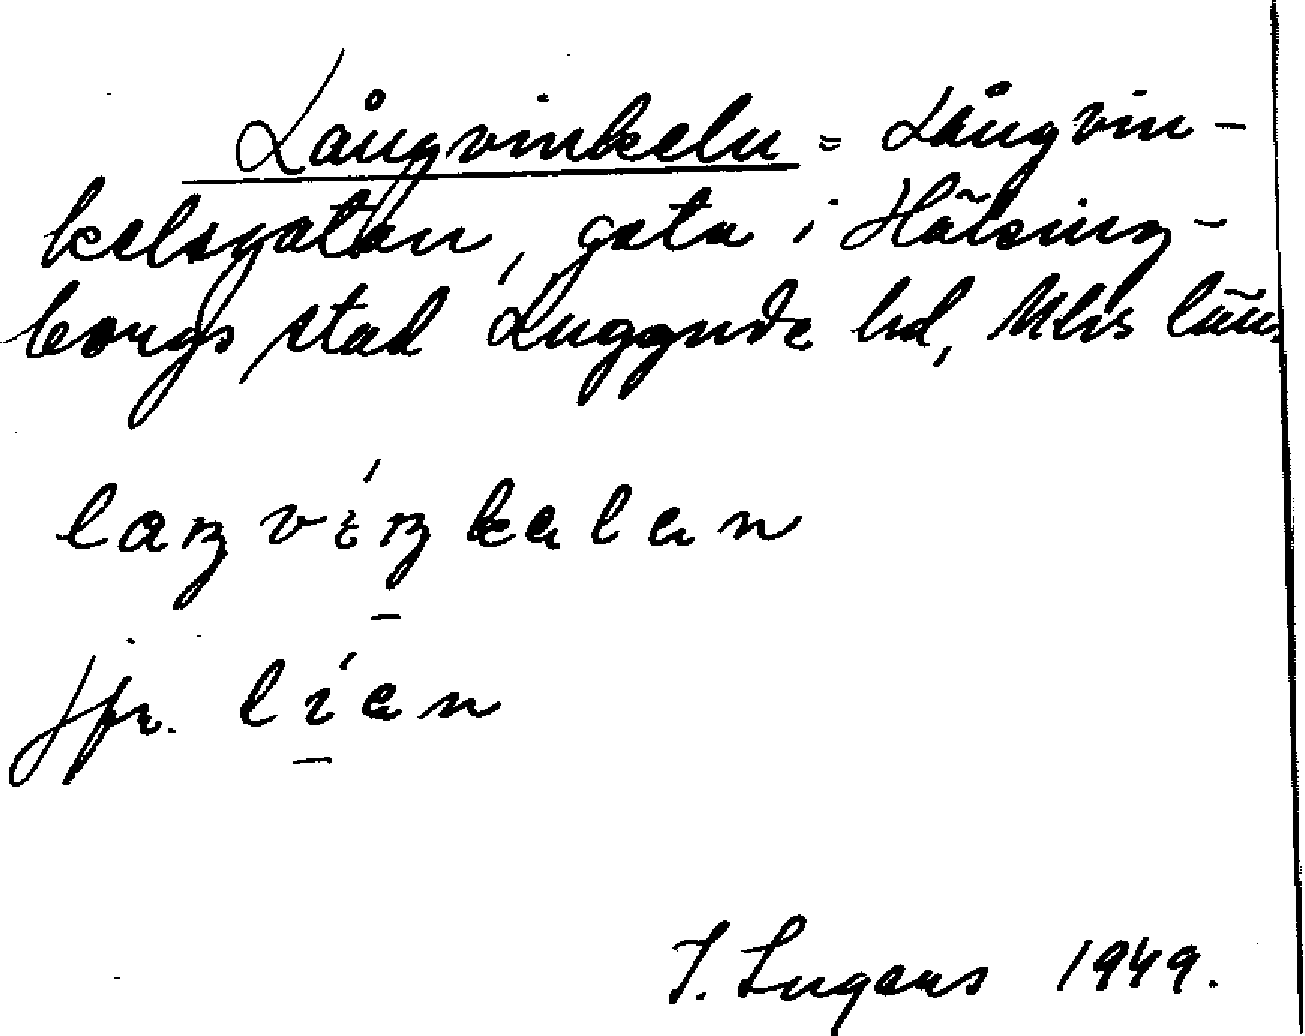 Långvinkeln = Långvin-
kelsgatan, gata i Hälsing-
borgs stad, Luggude hd, Mlhs län.
laŋvíŋkelen
jfr. líen
I. Ingers 1949.